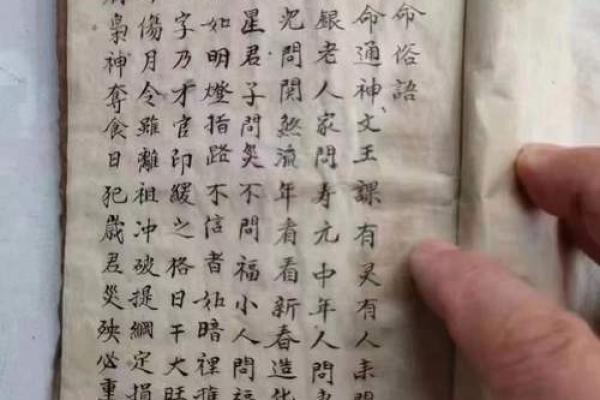 命俗語
命通神文王課有灵有人来問
銀老人家問壽元中年人問
兒問関煞流年看看新春造化
星君子問災不問福小人問福
如明燈指路不信者如暗裡
字乃才官印綬之格日干大旺
傷月令雖離祖冲破提綱定損
梟神奪食日犯歲君災殃必重